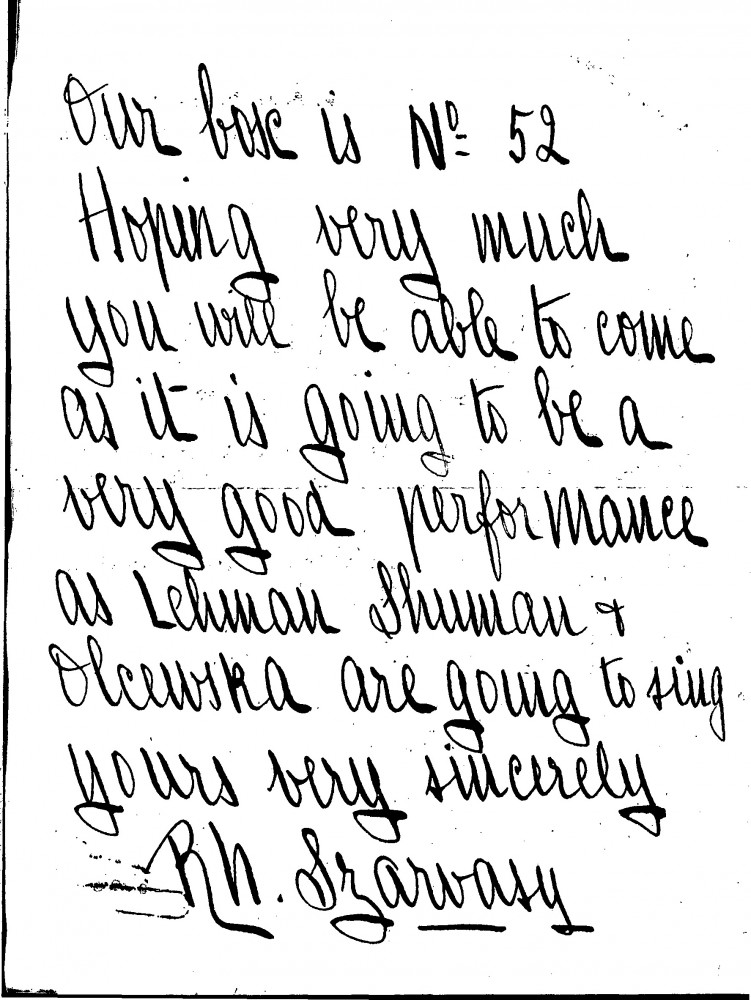 Our box is Nº 52
Hoping very much
you will be able to come
as it is going to be a
very good performance
as Lehman Shuman &
Olcewska are going to sing
yours very sincerely
Rh. Szarvasy